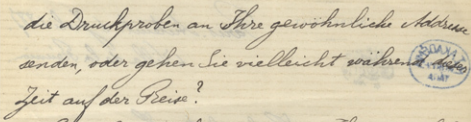 die Druckproben an Ihre gewöhnliche Addresse
senden, oder gehen Sie vielleicht während
Zeit auf der Reise?